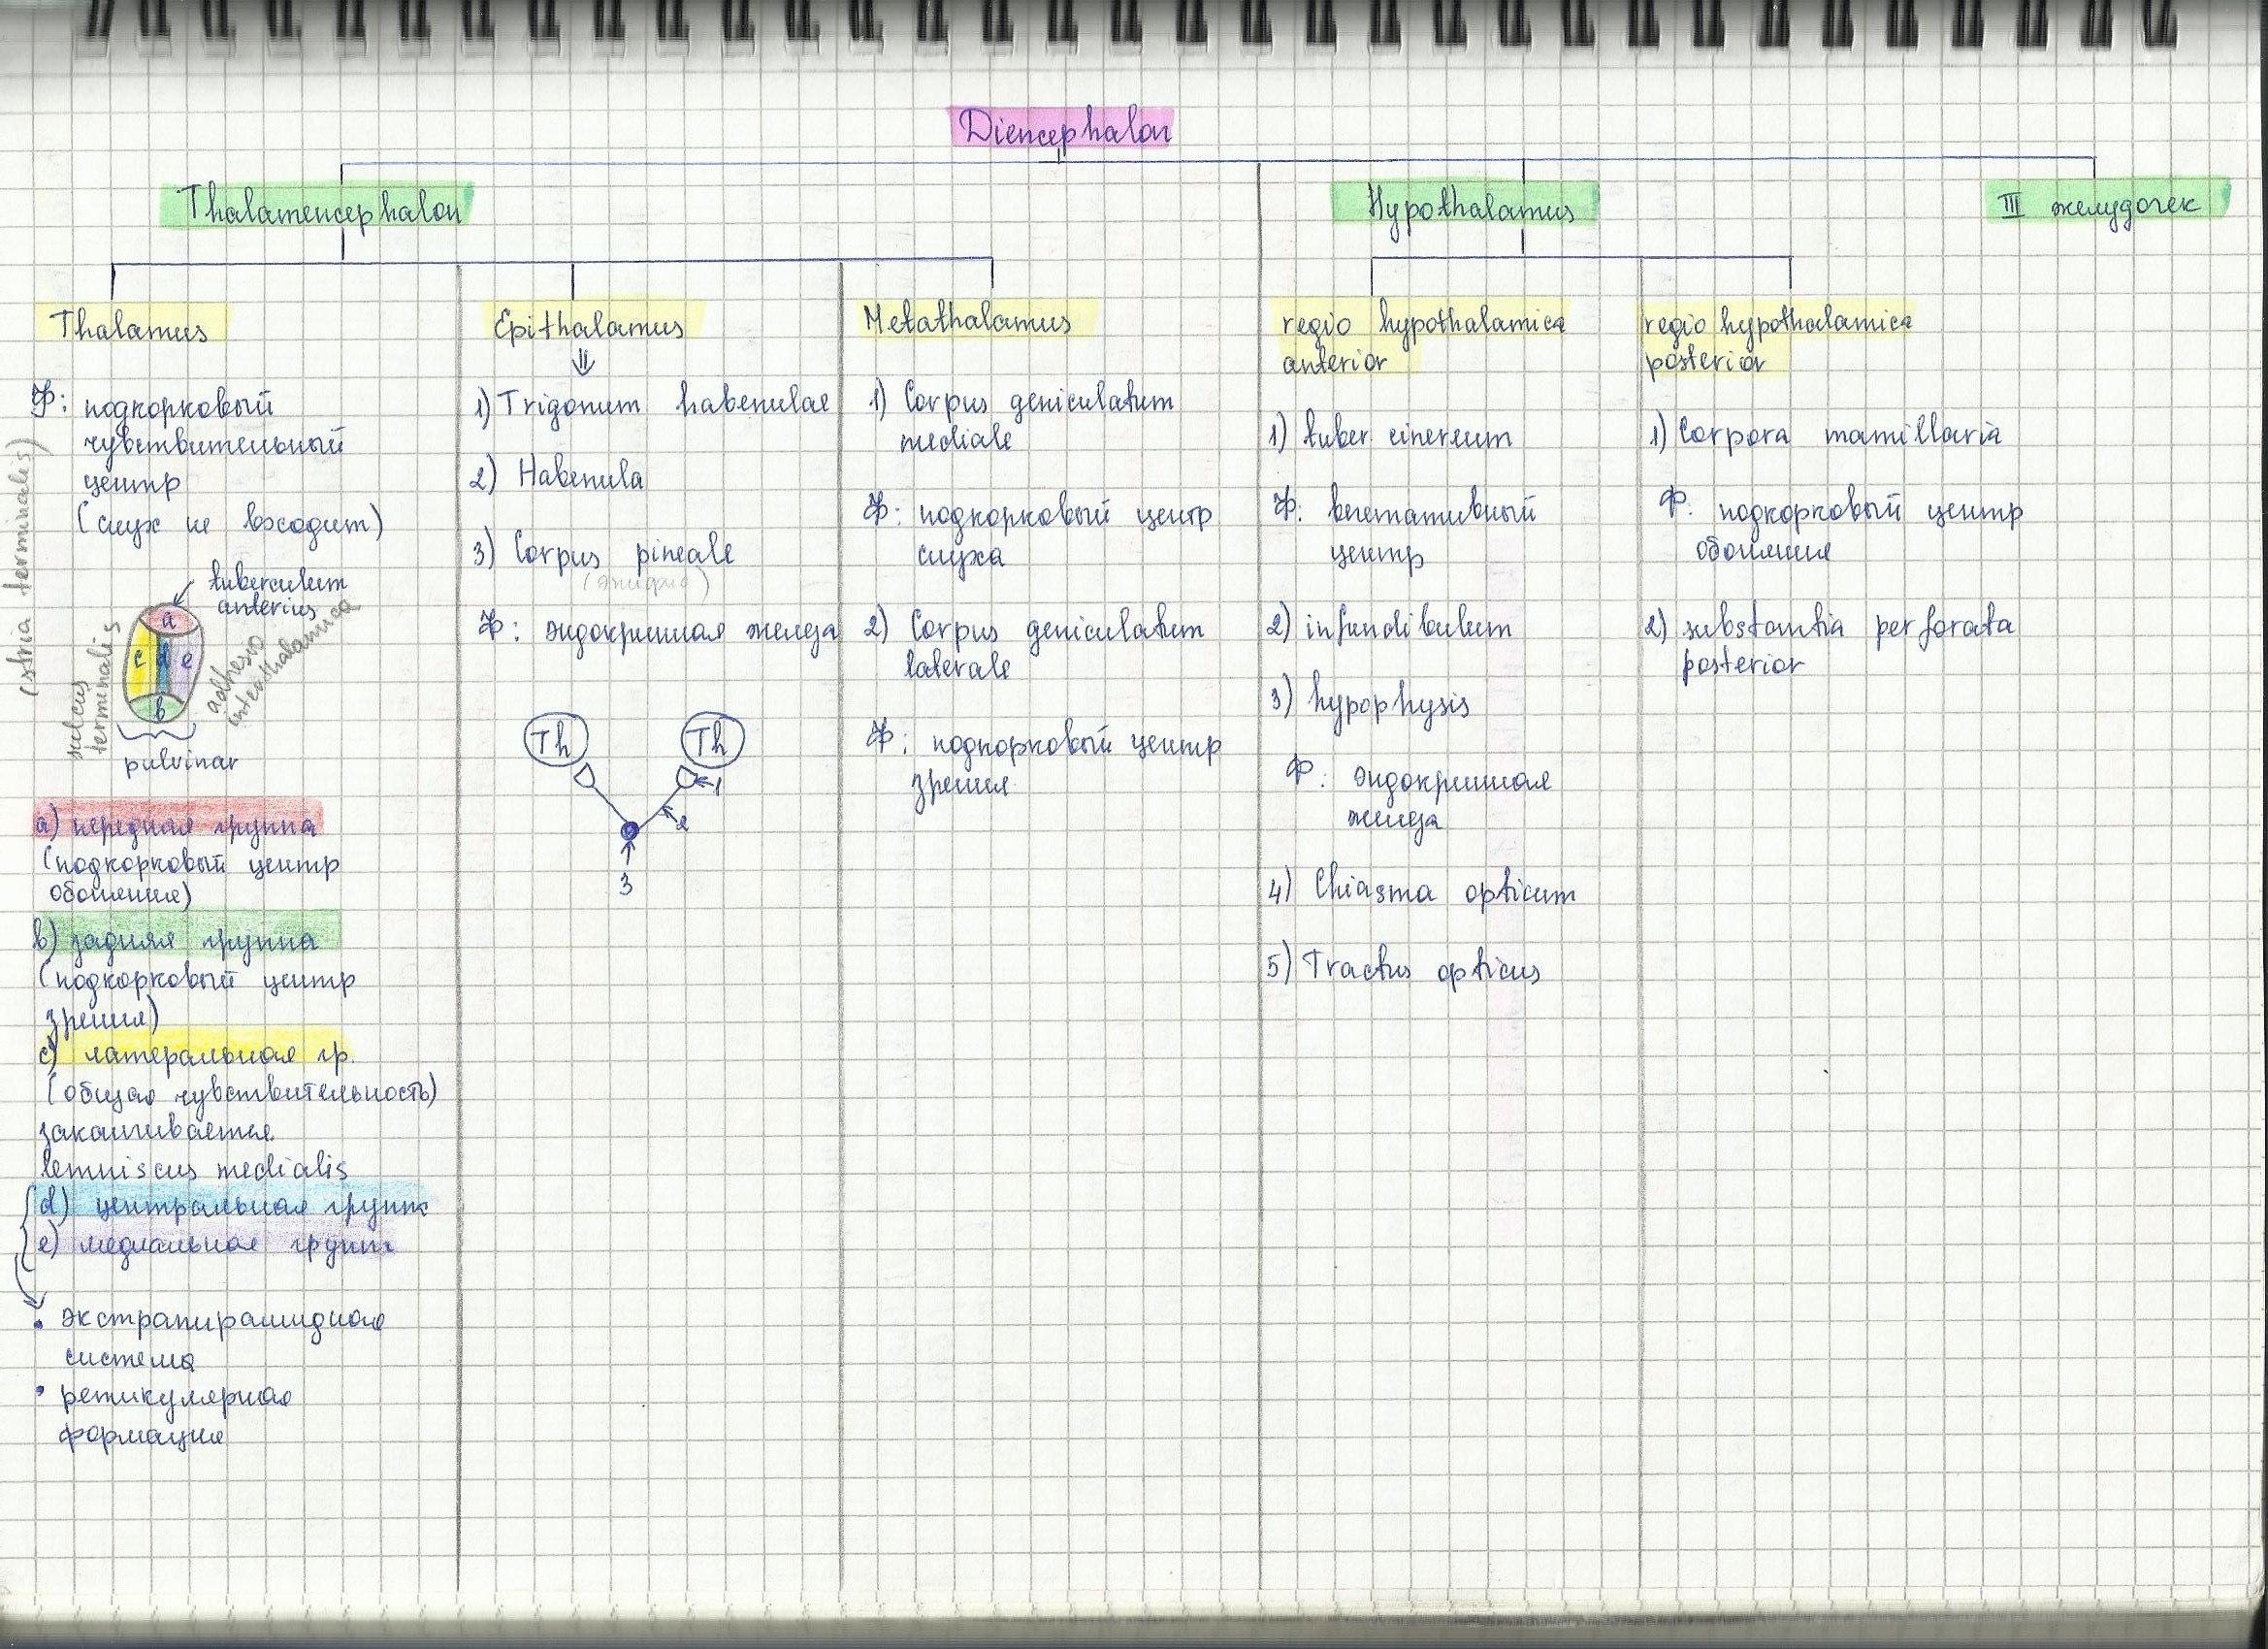 Diencephalon
Thalamencephalon
Hypothalamus
III желудочек
Thalamus
Ф: подкорковый
чувствительный
центр
(слух не входит)
(stria terminalis)
tuberculum
anterius
a
c d e
b
sulcus
terminalis
adhesio
interthalamica
pulvinar
a) передняя группа
(подкорковый центр
обоняния)
b) задняя группа
(подкорковый центр
зрения)
c) латеральная гр.
(общая чувствительность)
заканчивается
lemniscus medialis
d) центральная группа
e) медиальная группа
• экстрапирамидная
система
• ретикулярная
формация
Epithalamus
1) Trigonum habenulae
2) Habenula
3) Corpus pineale
(эпифиз)
Ф: эндокринная железа
Th Th
1
2
3
Metathalamus
1) Corpus geniculatum
mediale
Ф: подкорковый центр
слуха
2) Corpus geniculatum
laterale
Ф: подкорковый центр
зрения
regio hypothalamica
anterior
1) tuber cinereum
Ф: вегетативный
центр
2) infundibulum
3) hypophysis
Ф: эндокринная
железа
4) Chiasma opticum
5) Tractus opticus
regio hypothalamica
posterior
1) Corpora mamillaria
Ф: подкорковый центр
обоняния
2) substantia perforata
posterior